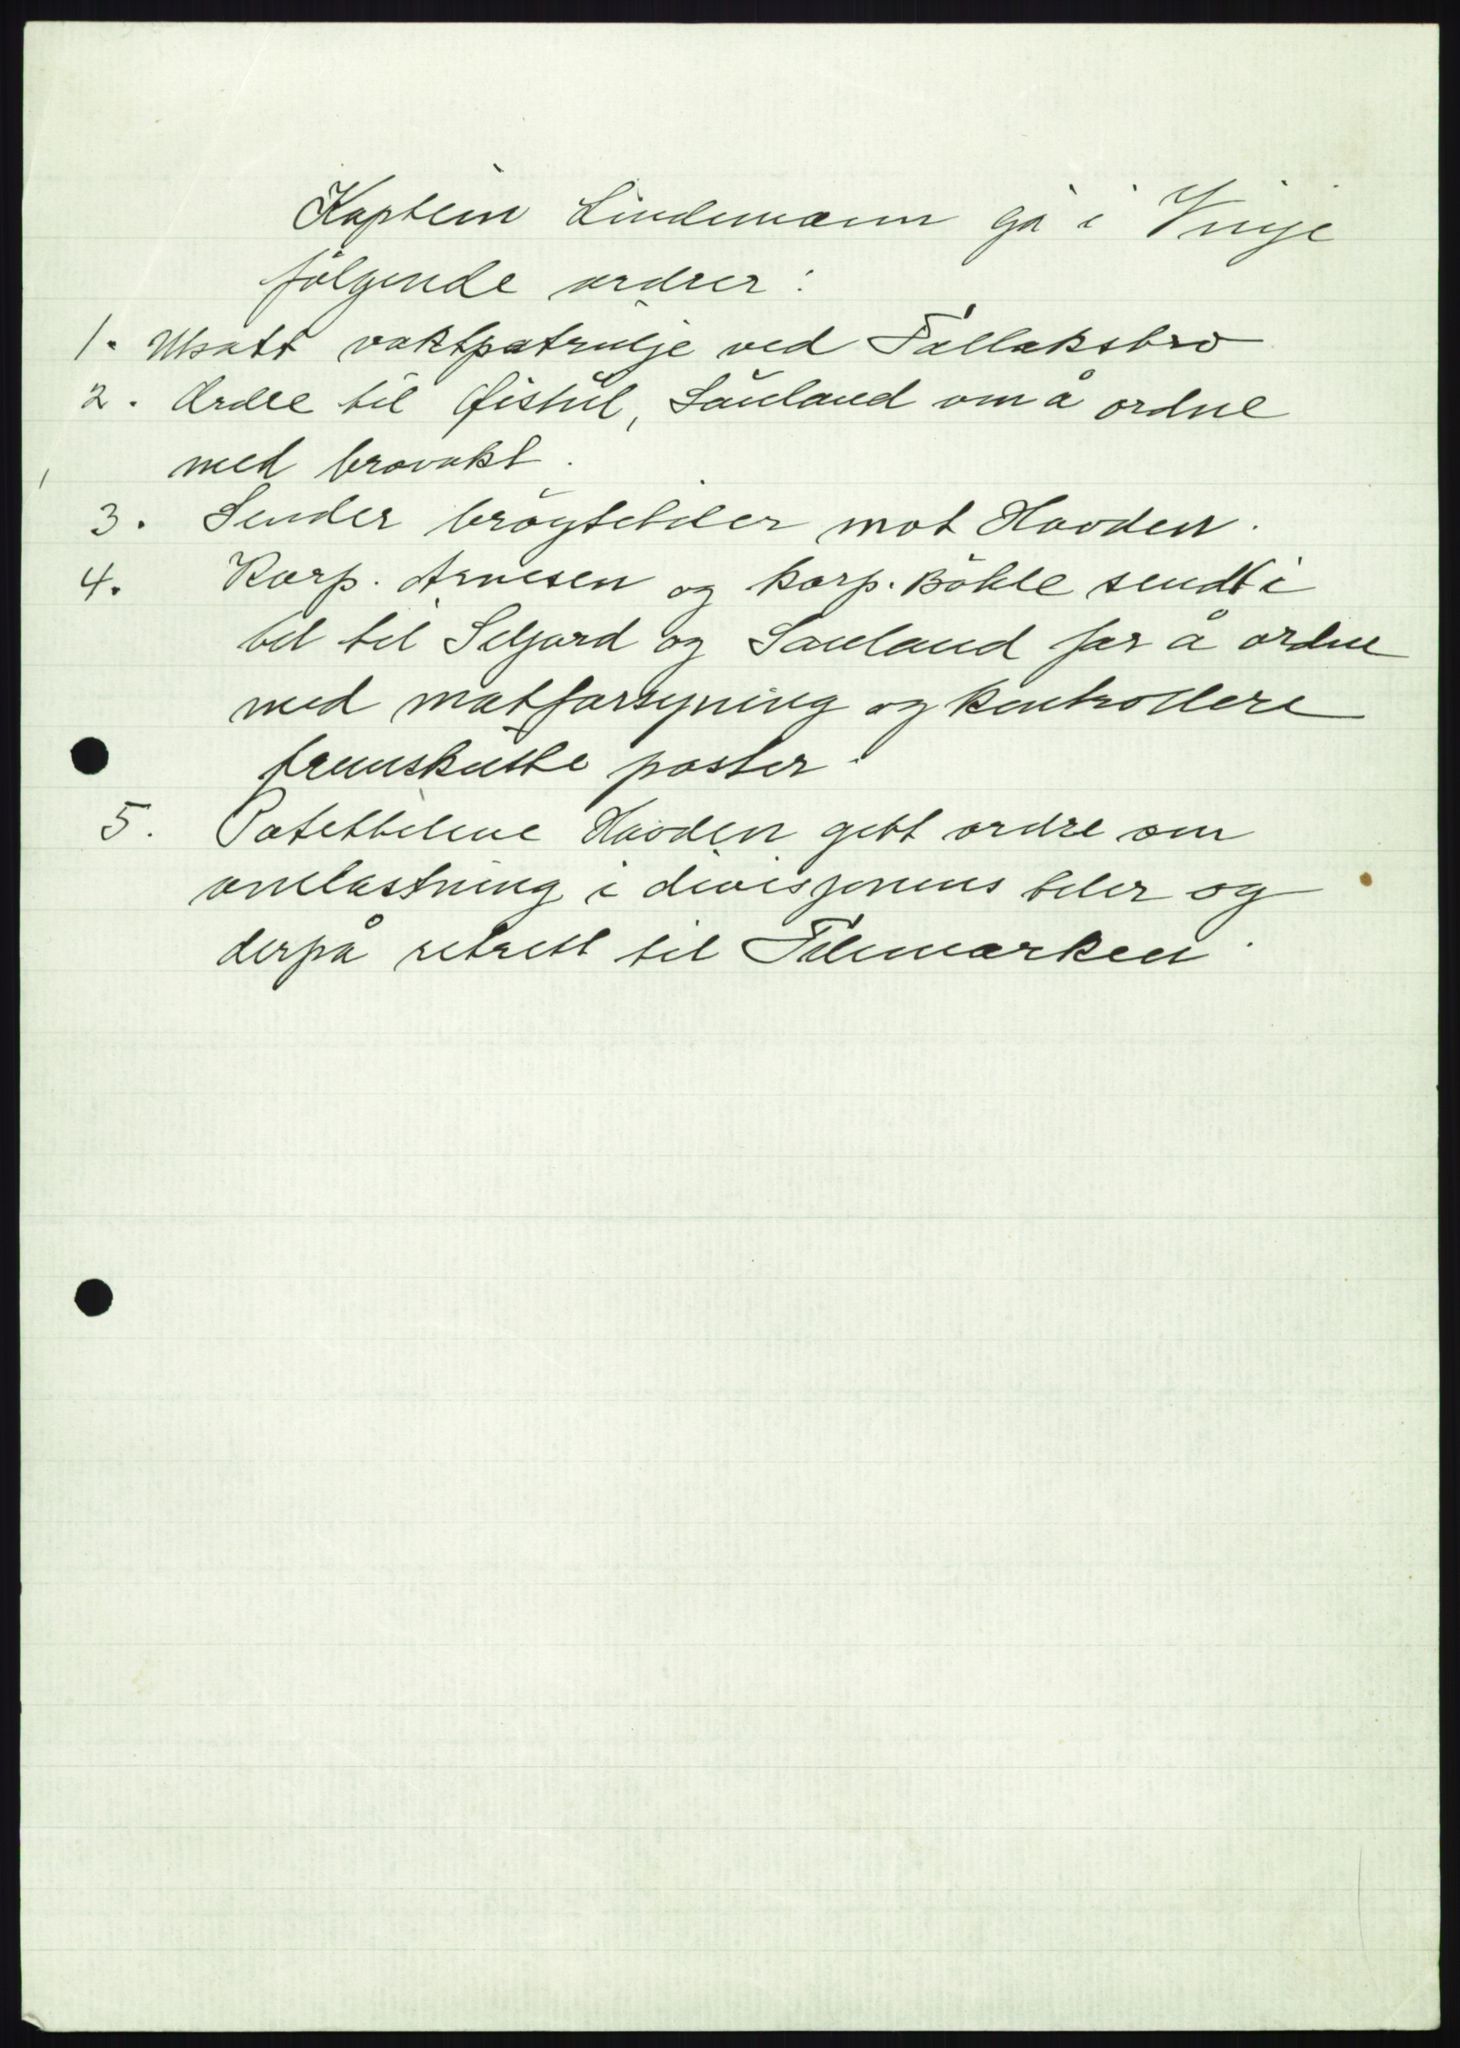 Kaptein Lindemann ga i Vinje
følgende ordrer:
1. Utsatt vaktpatrulje ved Tallaksbro
2. Ordre til Øistul, Sauland om å ordne
med brovakt.
3. Sender brøytebiler mot Hovden.
4. Korp. Arnesen og korp. Bøhle sendt i
bil til Seljord og Sauland for å ordne
med matforsyning og kontrollere
fremskutte poster.
5. Potetbilene Hovden gitt ordre om
omlastning i divisjonens biler og
derpå retrett til Telemarken.